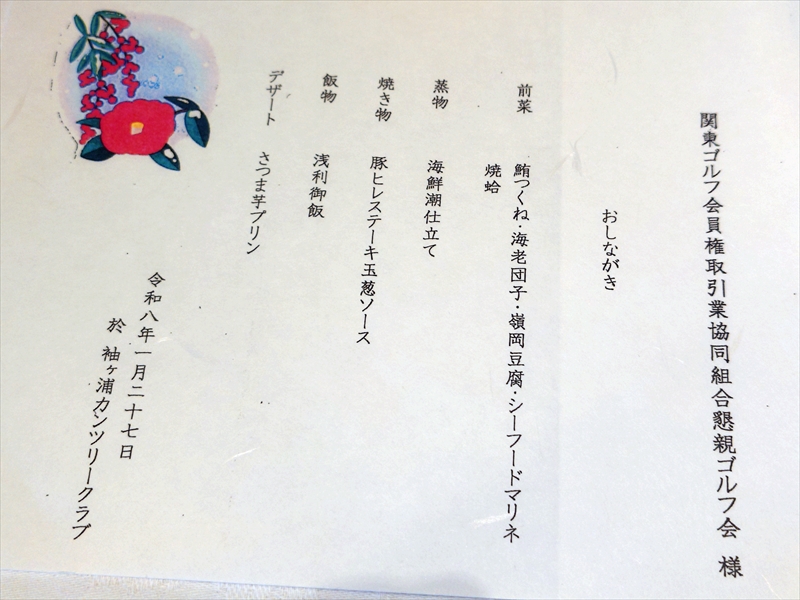 関東ゴルフ会員権取引業協同組合懇親ゴルフ会 様
おしながき
前菜 鮪つくね・海老団子・嶺岡豆腐・シーフードマリネ
焼蛤
蒸物 海鮮潮仕立て
焼き物 豚ヒレステーキ玉葱ソース
飯物 浅利御飯
デザート さつま芋プリン
令和八年一月二十七日
於 袖ヶ浦カンツリークラブ